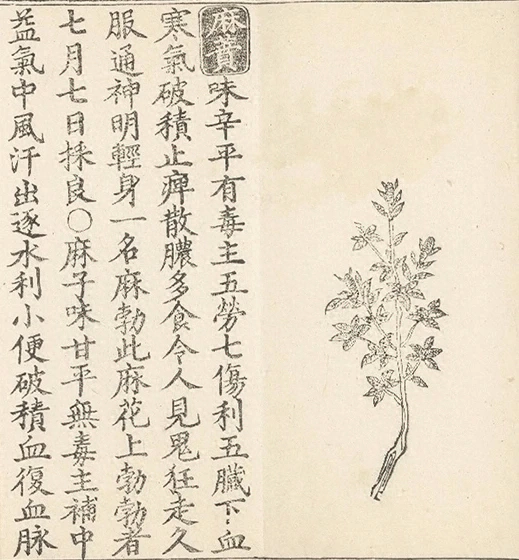 麻蕡味辛平有毒主五勞七傷利五臟下血
寒氣破積止痺散膿多食令人見鬼狂走久
服通神明輕身一名麻勃此麻花上勃勃者
七月七日採良○麻子味甘平無毒主補中
益氣中風汗出逐水利小便破積血復血脉